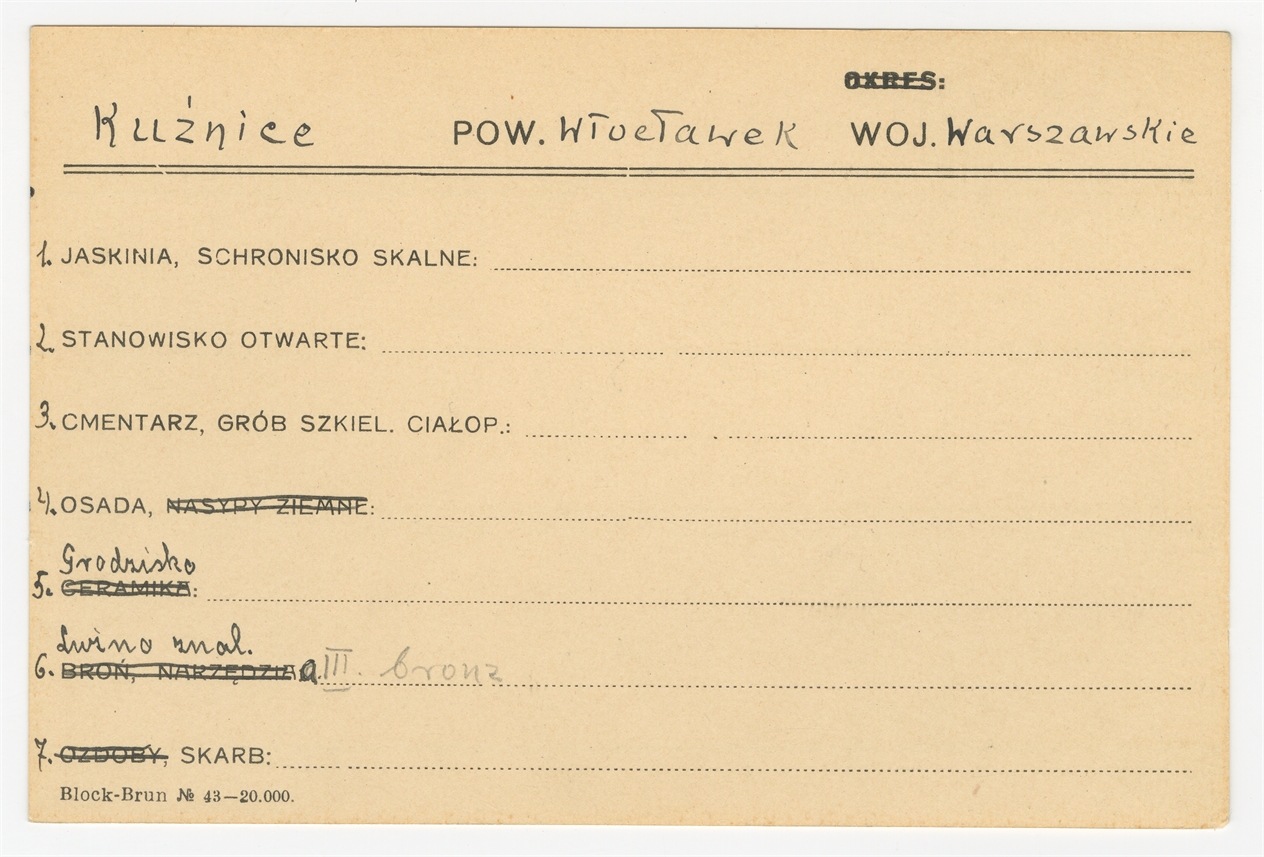 OKRES:
Kuźnice POW. Włocławek WOJ. Warszawskie
1. JASKINIA, SCHRONISKO SKALNE:
2. STANOWISKO OTWARTE:
3. CMENTARZ, GRÓB SZKIEL. CIAŁOP.:
4. OSADA, NASYPY ZIEMNE:
Grodzisko
5. CERAMIKA:
Luźno znal.
6. BROŃ, NARZĘDZIA a III. bronz
7. OZDOBY, SKARB:
Block-Brun № 43—20.000.